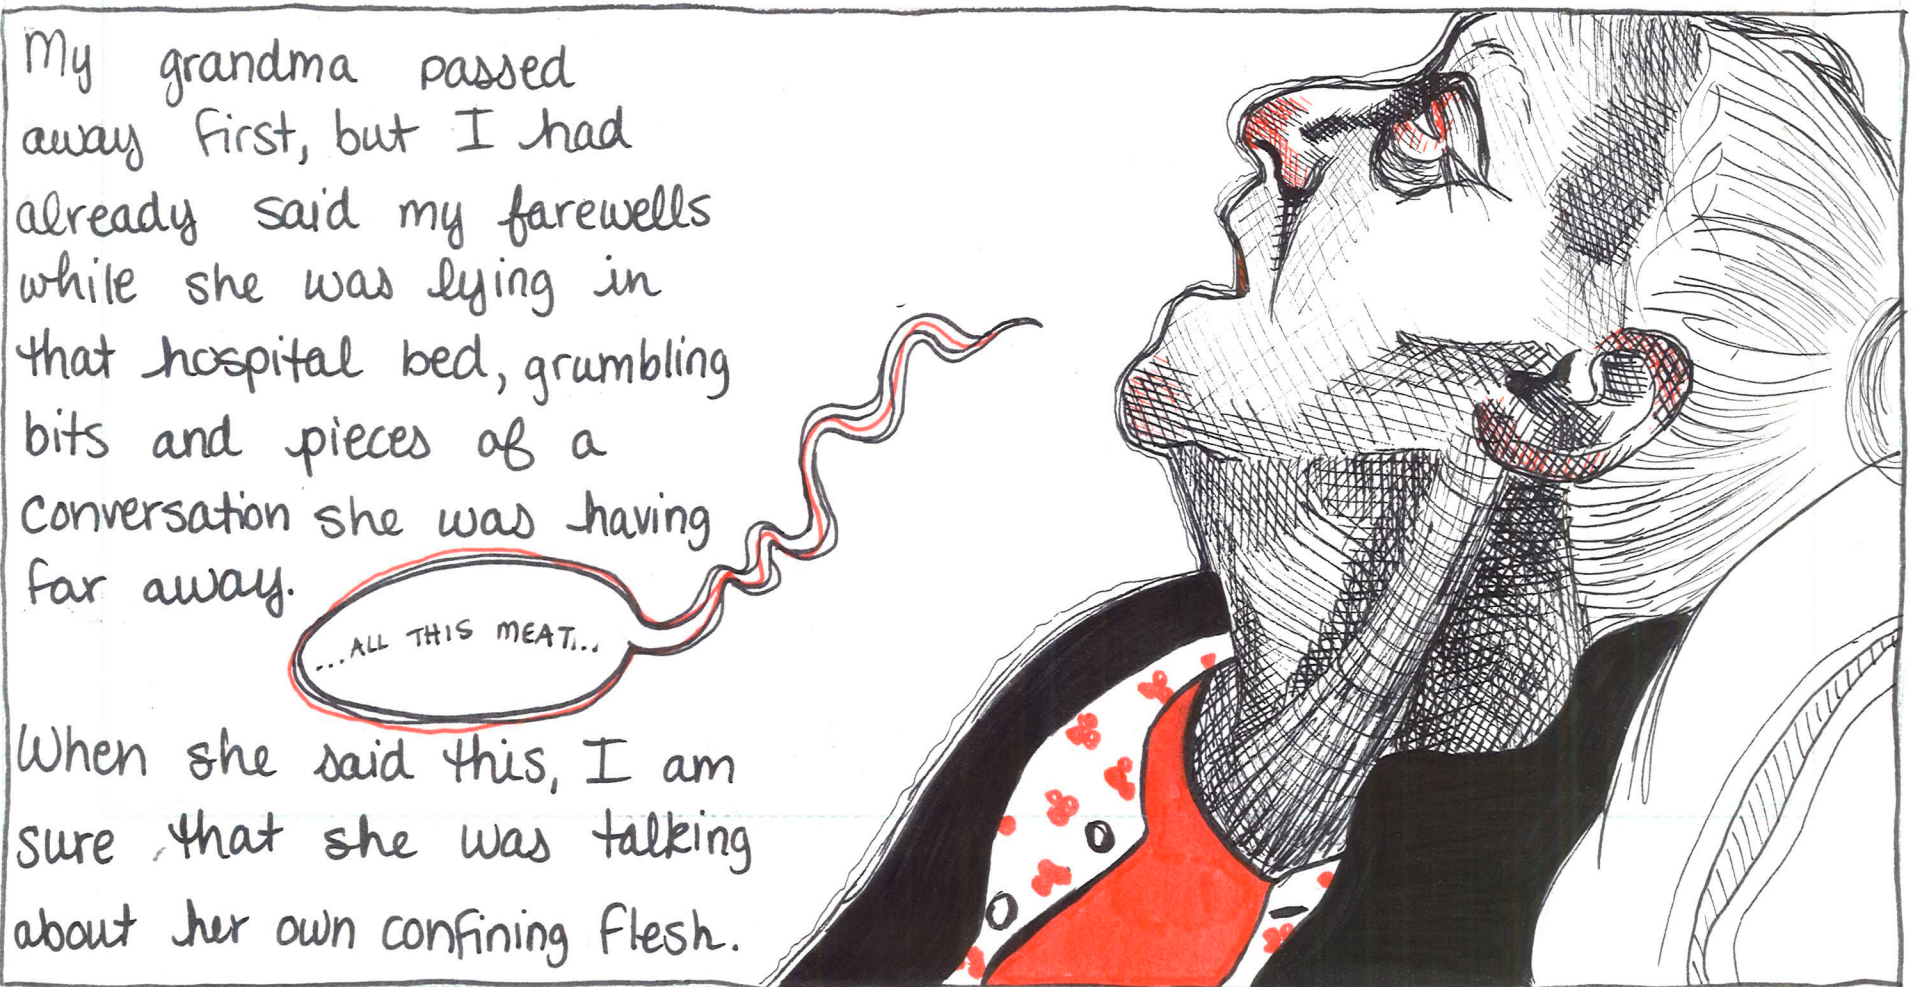 My grandma passed
away first, but I had
already said my farewells
while she was lying in
that hospital bed, grumbling
bits and pieces of a
conversation she was having
far away.
...ALL THIS MEAT...
When she said this, I am
sure that she was talking
about her own confining flesh.